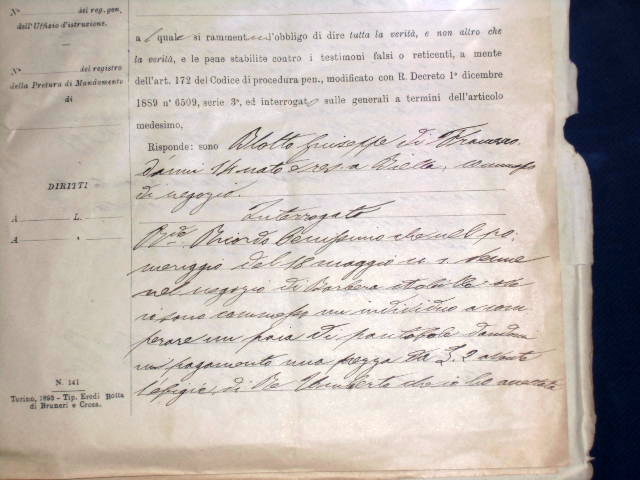 N° del reg. gen.
dell'Uffizio d'istruzione.
N° del registro
della Pretura di Mandamento
di
DIRITTI
A L.
A »
N. 141
Torino, 1893 - Tip. Eredi Botta
di Bruneri e Crosa.
a l quale si rammenta l'obbligo di dire tutta la verità, e non altro che
la verità, e le pene stabilite contro i testimoni falsi o reticenti, a mente
dell'art. 172 del Codice di procedura pen., modificato con R. Decreto 1° dicembre
1889 n° 6509, serie 3ª, ed interrogato sulle generali a termini dell'articolo
medesimo,
Risponde: sono Blotto Giuseppe di Francesco
d'anni 14 nato e res. a Biella, commesso
di negozio.
Interrogato
Rde Ricordo benissimo che nel po-
meriggio del 18 maggio u. s. venne
nel negozio di Barbera ove
io sono commesso un individuo a com-
perare un paia di pantofole dandomi
in pagamento una pezza da L. 2 avente
l'effigie di Re Umberto che io ho accettata